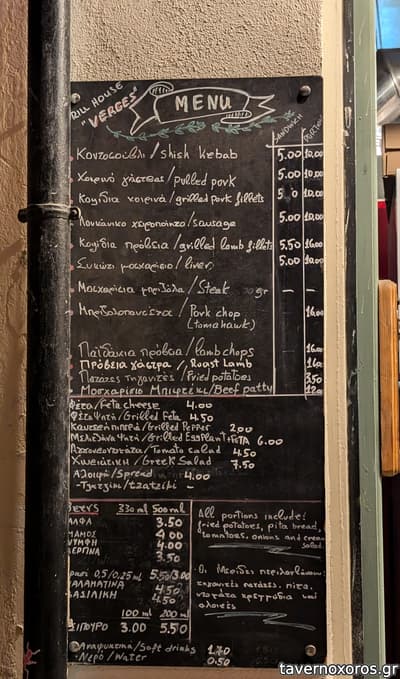 HOUSE
"VERGES"
MENU
SANDWICH
Κοντοσούβλι / shish kebab 5.00 10.00
Χοιρινό γάστρας / pulled pork 5.00 10.00
Κοψίδια χοιρινά / grilled pork fillets 10.00
Λουκάνικο χωροποίητο / sausage 5.00 10.00
Κοψίδια πρόβεια / grilled lamb fillets 5.50 16.00
Συκώτι μοσχαρίσιο / liver 5.00 10.00
Μοσχαρίσια μπριζόλα / Steak gr — —
Μπριζολοπανσέτα / Pork chop 16.00
(tomahawk)
Παϊδάκια πρόβεια / lamb chops
Πρόβεια γάστρα / Roast Lamb
Πατάτες τηγανιτές / Fried potatoes 3.50
Μοσχαρίσιο Μπιφτέκι / Beef patty
Φέτα / Feta cheese 4.00
Φέτα ψητή / Grilled Feta 4.50
Καυτερή πιπεριά / Grilled Pepper 2.00
Μελιτζάνα ψητή / Grilled Eggplant + FETA 6.00
/ Tomato salad 4.50
Χωριάτικη / Greek Salad 7.50
Αλοιφή / Spread 4.00
-Τζατζίκι / Tzatziki -
BEERS 330 ml 500 ml
ΑΛΦΑ 3.50
ΜΑΜΟΣ 4.00
ΝΥΜΦΗ 4.00
ΒΕΡΓΙΝΑ 3.50
0,5/0,25 ml 5.50/3.00
ΜΑΛΑΜΑΤΙΝΑ 4.50
ΒΑΣΙΛΙΚΗ 4.50
100 ml 200 ml
ΤΣΙΠΟΥΡΟ 3.00 5.50
Αναψυκτικά / Soft drinks 1.70
-Νερό / Water 0.50
All portions include:
fried potatoes, pita bread,
tomatoes, onions and cream
salad
-Οι Μερίδες περιλαμβάνουν:
τηγανιτές πατάτες, πίτα,
ντομάτα κρεμμύδια και
αλοιφές
tavernoxoros.gr